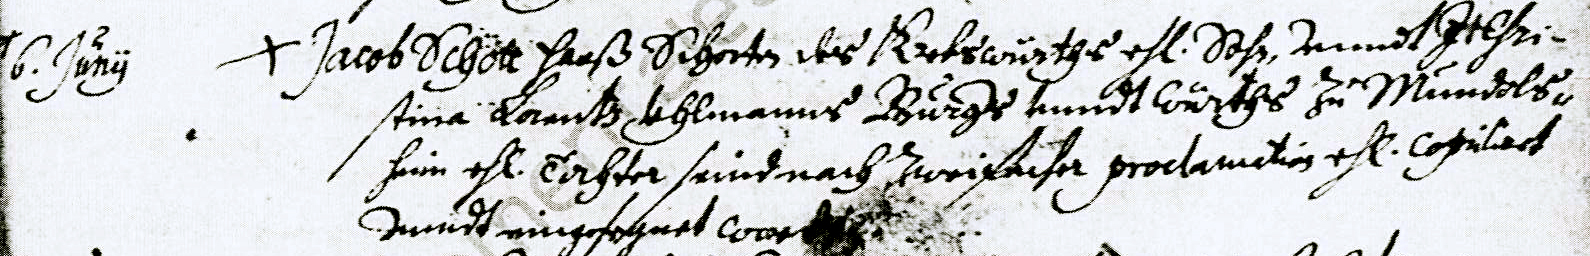 16. Junÿ Jacob Schött Hanß Schotten des Rebswürths ehl. Sohn, unndt Jr. Chri-
stina Lorentz Uhlmanns Burgers unndt würths zu Mundols-
heim ehl. Tochter seind nach Zweifacher proclamation ehl. copuliert
unndt eingesegnet worden.